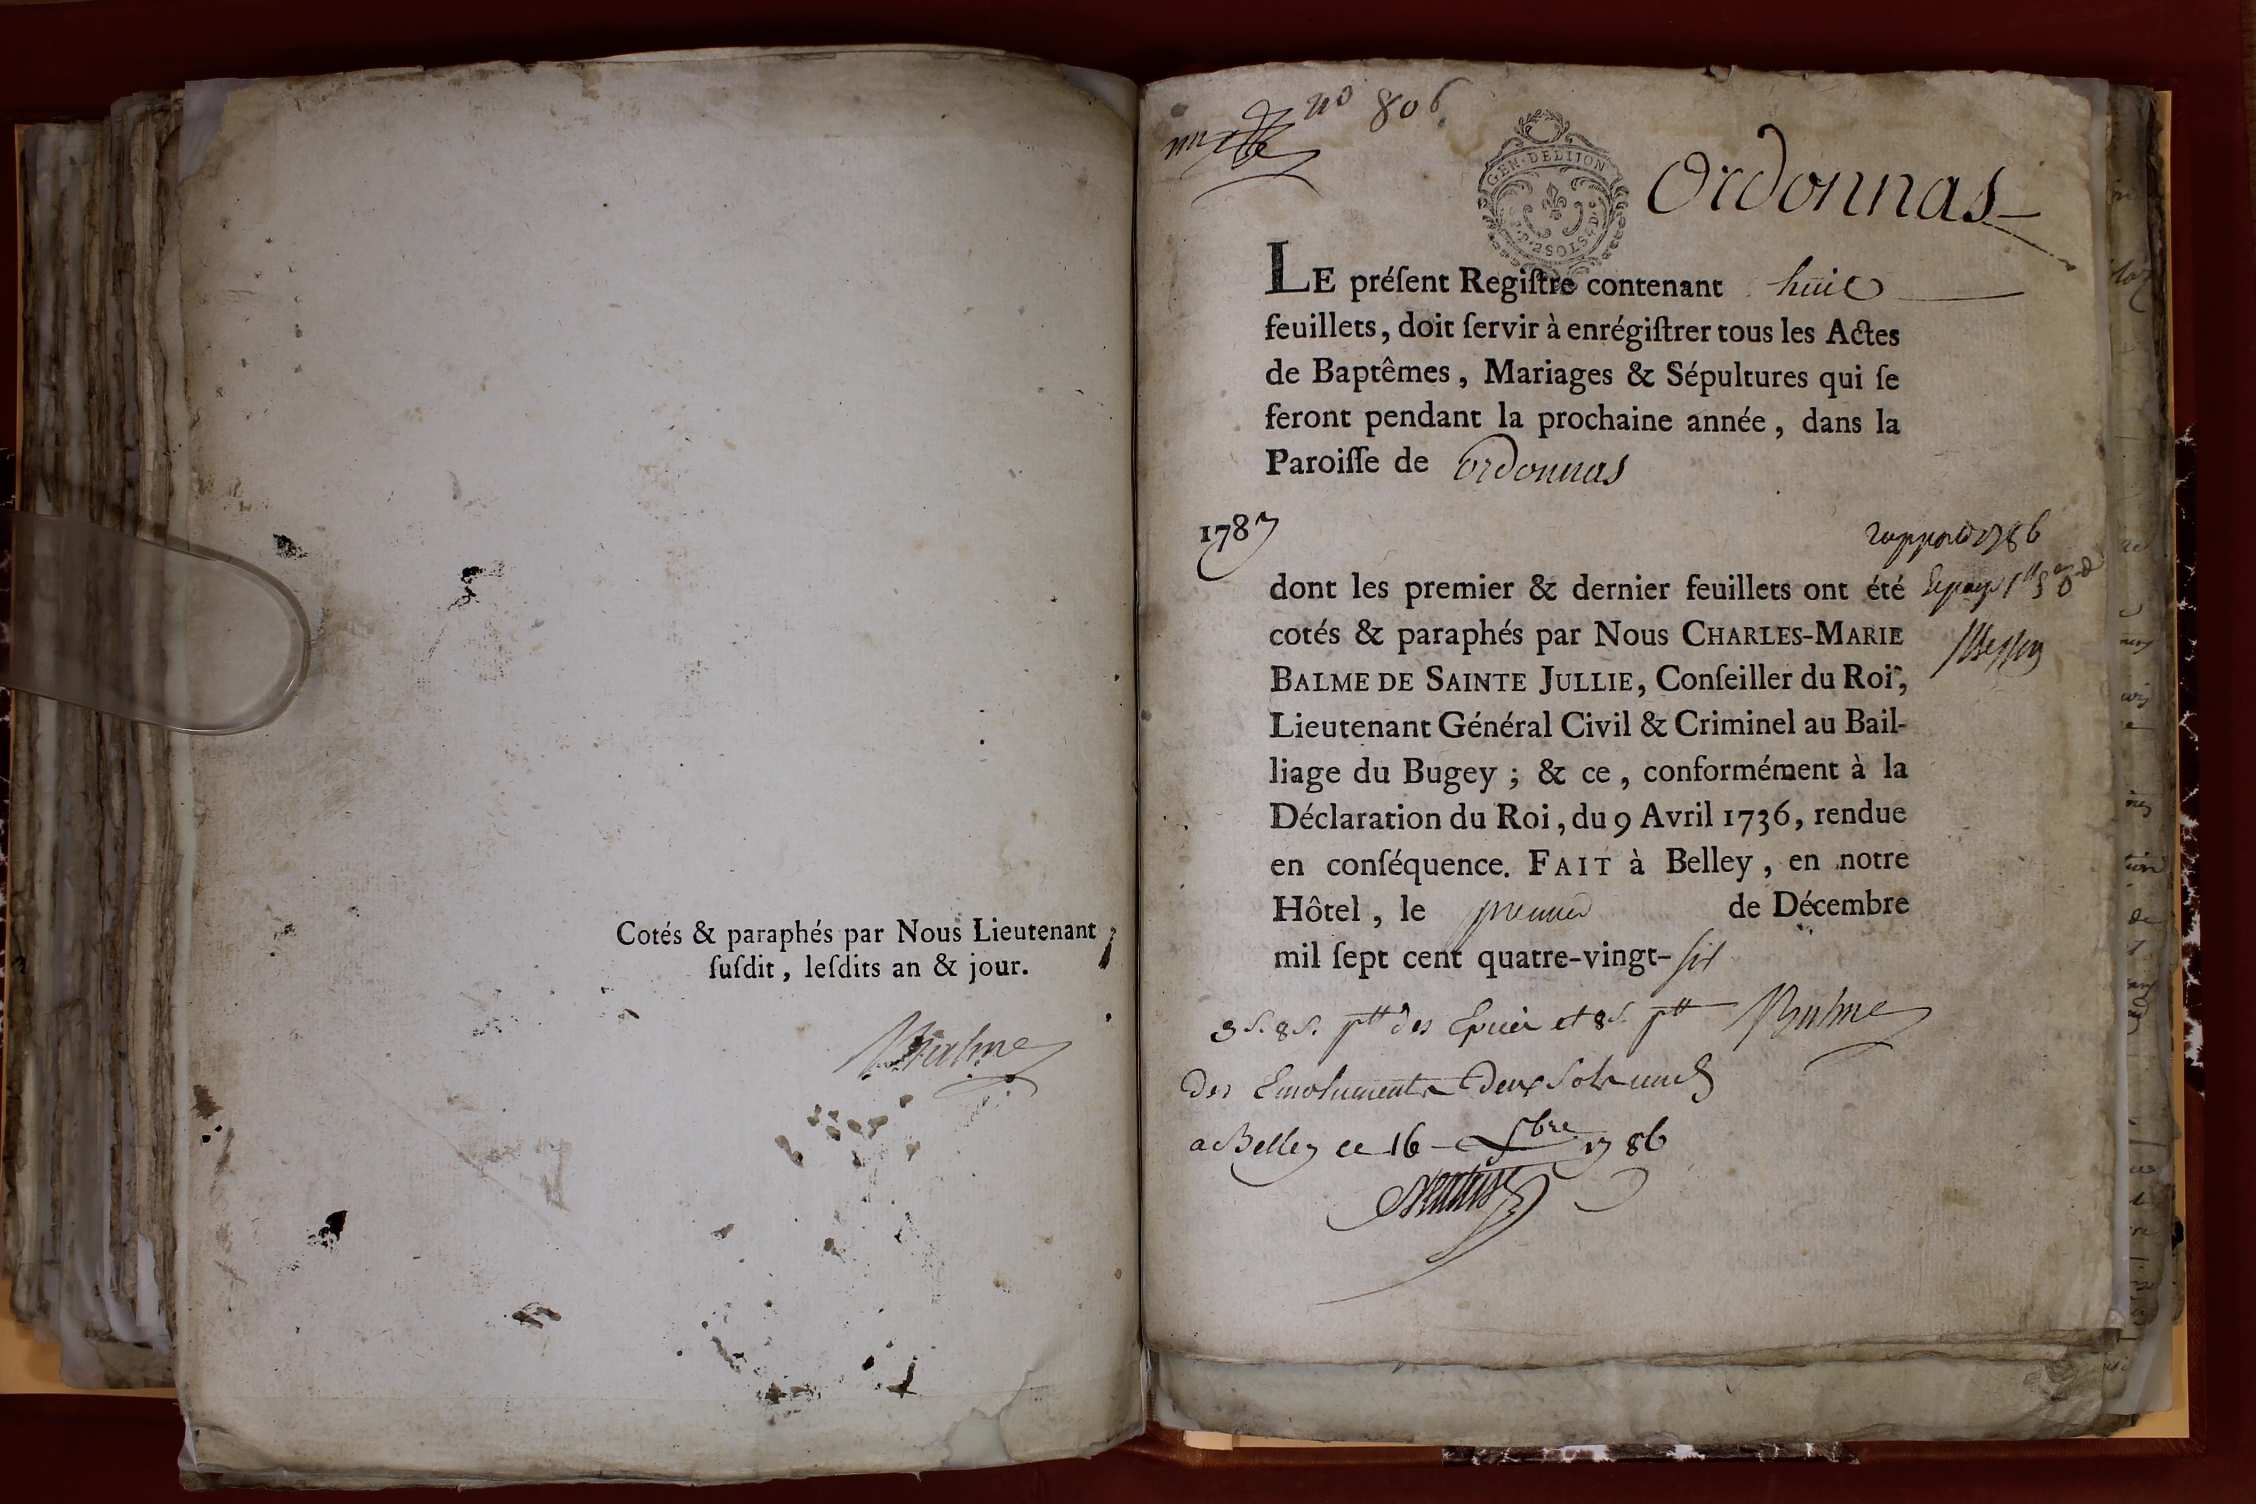 Cotés & paraphés par Nous Lieutenant
ſuſdit, leſdits an & jour.
Balme
no 806
GEN·DEDIJON
2SOLS
Ordonnas
LE préſent Regiſtre contenant huit
feuillets, doit ſervir à enrégiſtrer tous les Actes
de Baptêmes, Mariages & Sépultures qui ſe
feront pendant la prochaine année, dans la
Paroiſſe de ordonnas
1787
rapporté 1786
dont les premier & dernier feuillets ont été
cotés & paraphés par Nous CHARLES-MARIE
BALME DE SAINTE JULLIE, Conſeiller du Roi,
Lieutenant Général Civil & Criminel au Bail-
liage du Bugey ; & ce, conformément à la
Déclaration du Roi, du 9 Avril 1736, rendue
en conſéquence. FAIT à Belley, en notre
Hôtel, le premier de Décembre
mil ſept cent quatre-vingt-ſix
3 s. 8 s. ptt des Epices et 8 s. ptt Balme
des Emoluments deux sols
a Belley ce 16 1786